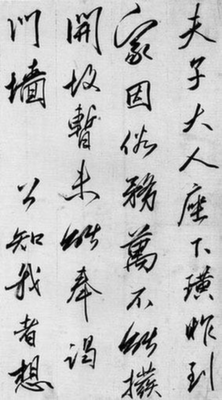 夫子大人座下璜昨到
家因俗務萬不能撥
開故暫未能奉謁
門墙 公知我者想